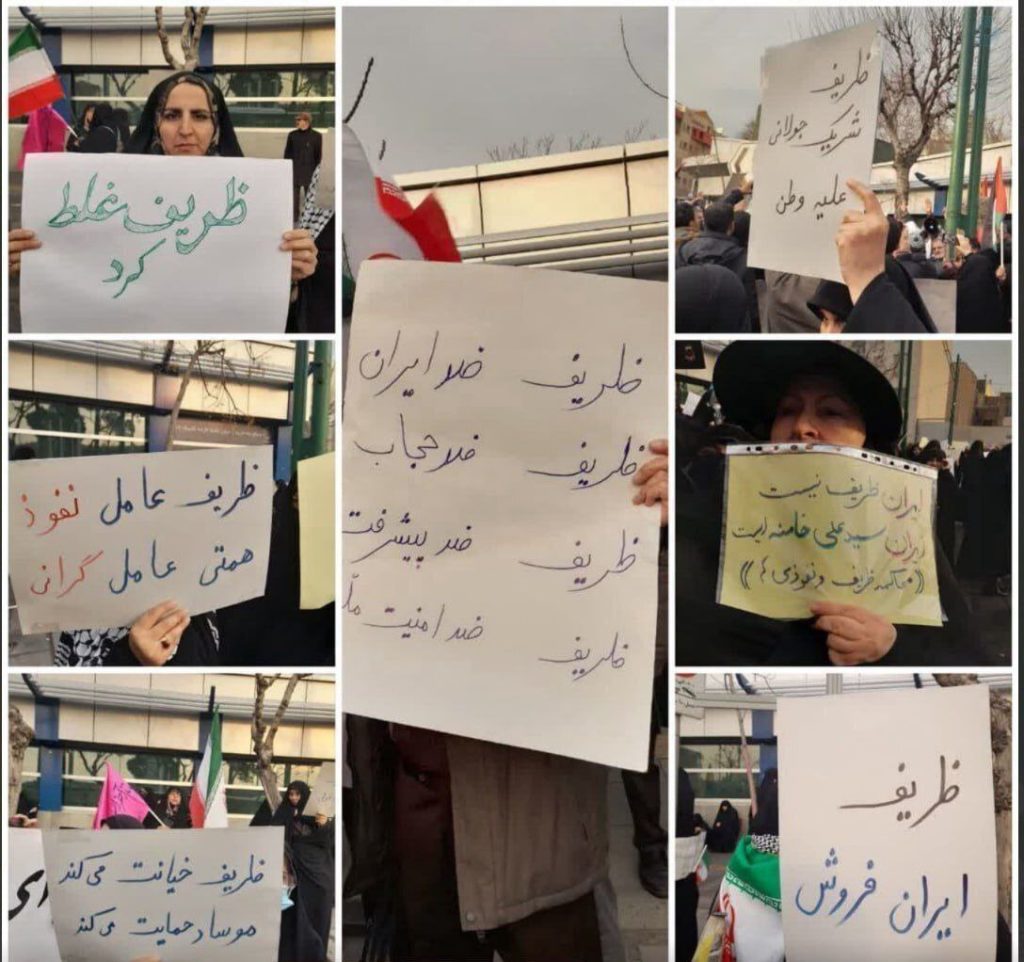 ظریف غلط
کرد
ظریف عامل نفوذ
همتی عامل گرانی
ظریف خیانت می‌کند
موساد حمایت می‌کند
ظریف ضد ایران
ظریف ضد حجاب
ظریف ضد پیشرفت
ظریف ضد امنیت
ظریف
شریک جولانی
علیه وطن
ایران ظریف نیست
ایران سید علی خامنه ایست
((محاکمه ظریف و نفوذی ها))
ظریف
ایران فروش